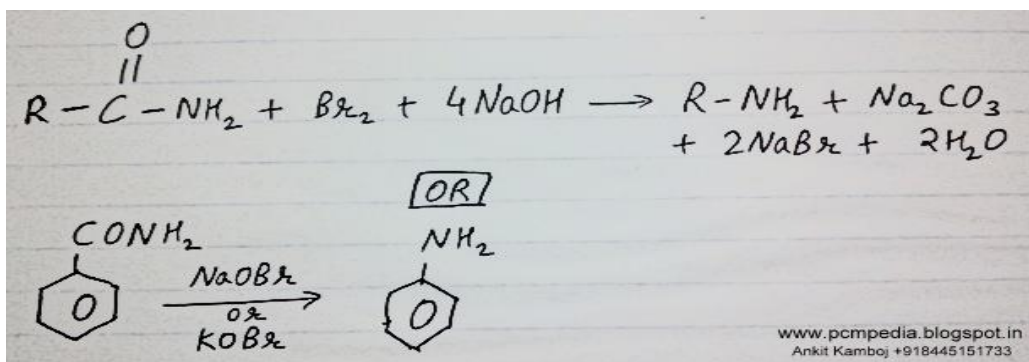 O
||
R - C - NH₂ + Br₂ + 4NaOH ⟶ R-NH₂ + Na₂CO₃
+ 2NaBr + 2H₂O
OR
CONH₂ NH₂
NaOBr
O O
or
KOBr
www.pcmpedia.blogspot.in
Ankit Kamboj +918445151733